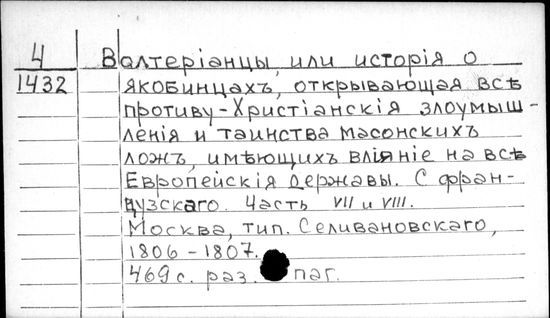 4 Валтеріанцы, или исторія о
1432 якобинцахъ, открывающая всѣ
противу-Христіанскія злоумыш-
ленія и таинства масонскихъ
ложъ, имѣющихъ вліяніе на всѣ
Европейскія державы. С фран-
цузскаго. Часть VII и VIII.
Москва, тип. Селивановскаго,
1806-1807.
469 с. раз. паг.